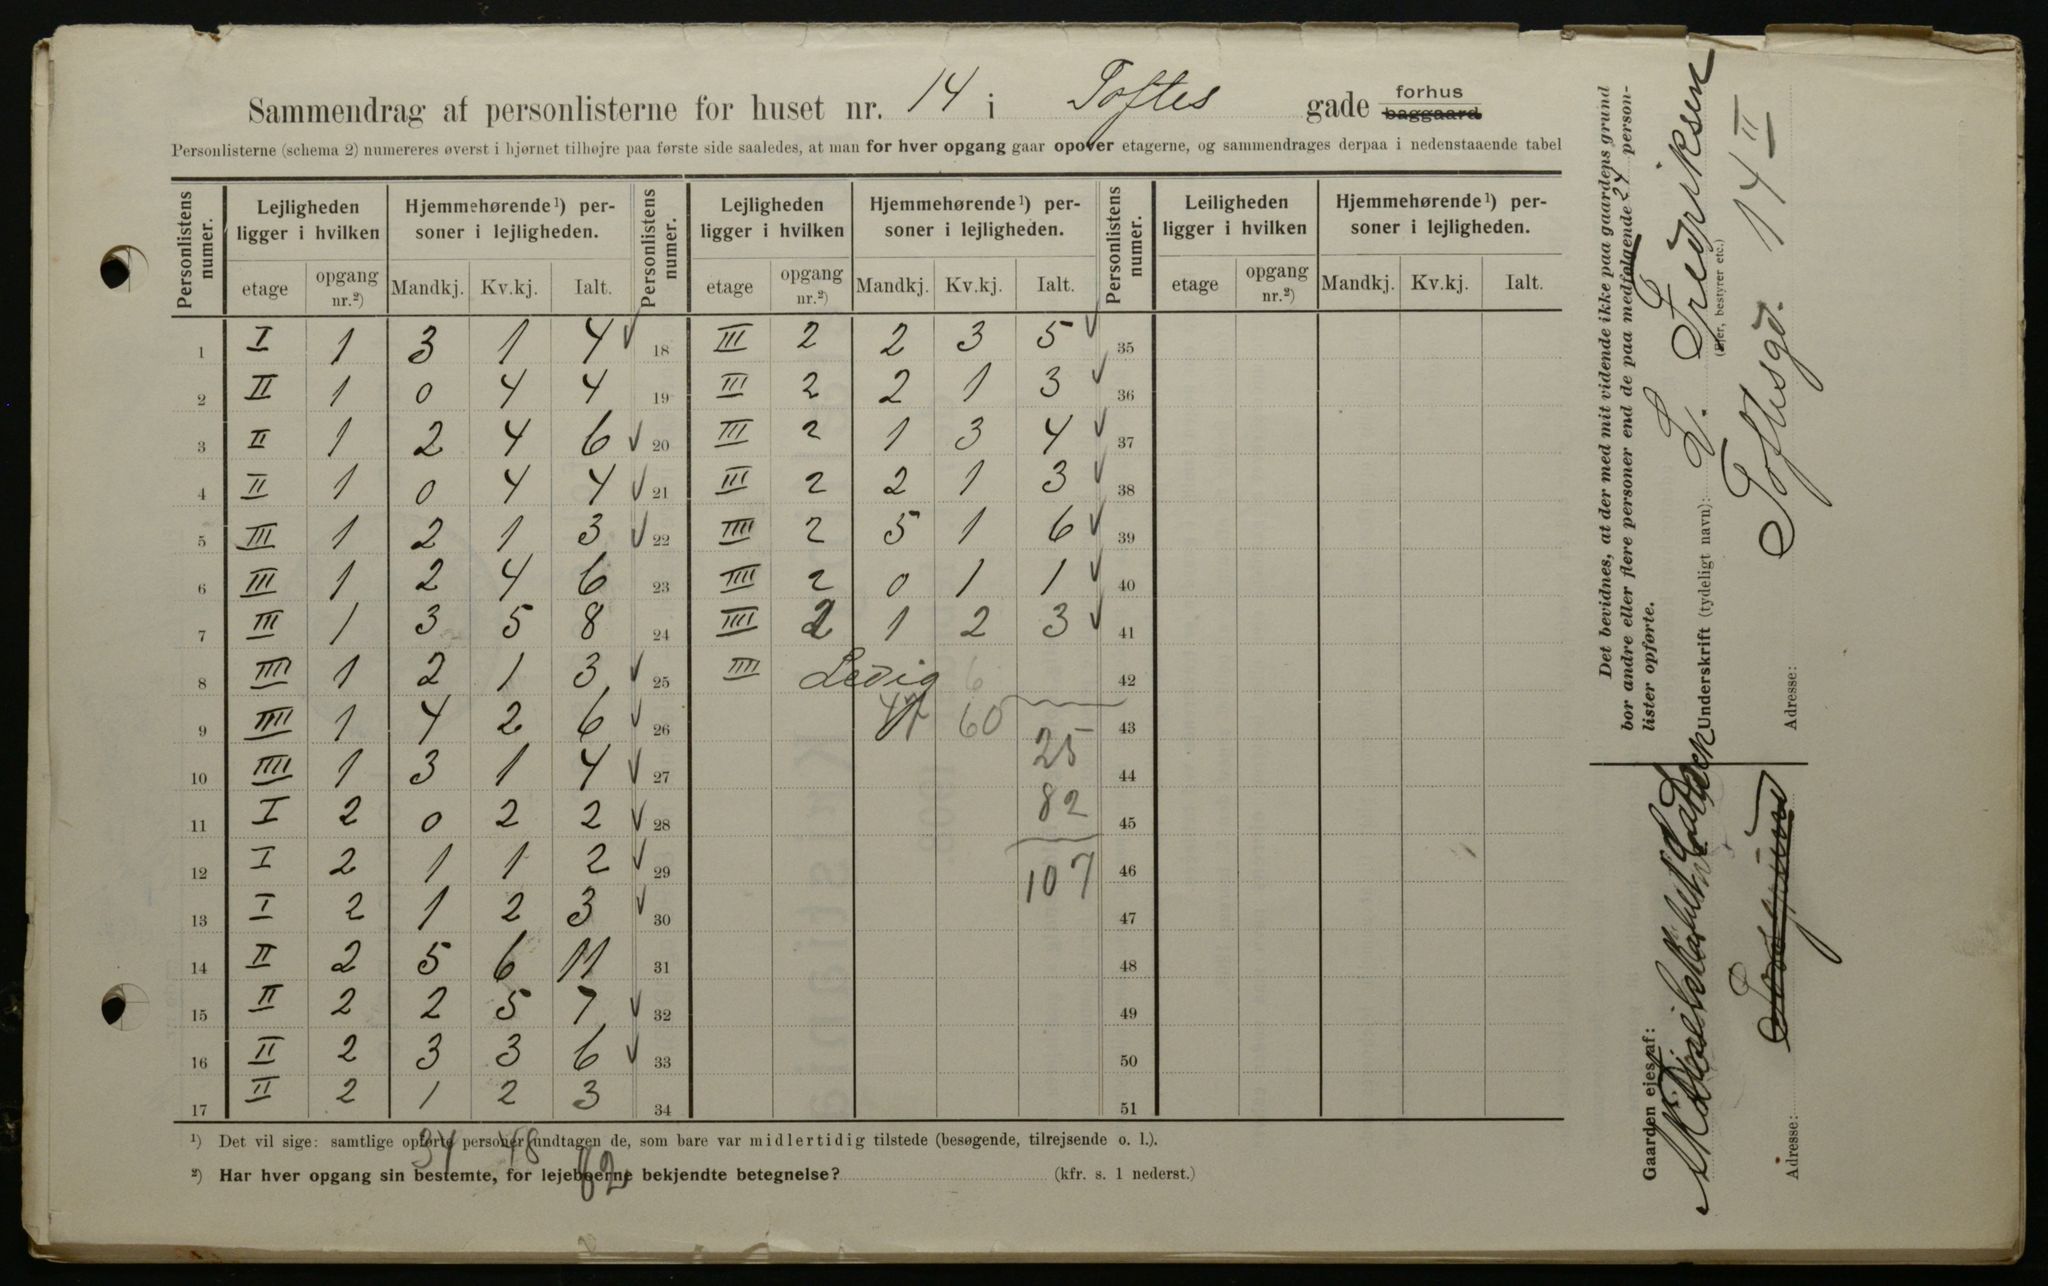 Sammendrag af personlisterne for huset nr. 14 i Toftes gade forhus baggaard
Personlisterne (schema 2) numereres øverst i hjørnet tilhøjre paa første side saaledes, at man for hver opgang gaar opover etagerne, og sammendrages derpaa i nedenstaaende tabel
Personlistens numer. Lejligheden ligger i hvilken Hjemmehørende¹) personer i lejligheden. Personlistens numer. Lejligheden ligger i hvilken Hjemmehørende¹) personer i lejligheden. Personlistens numer. Leiligheden ligger i hvilken Hjemmehørende¹) personer i lejligheden.
etage opgang nr.²) Mandkj. Kv.kj. Ialt. etage opgang nr.²) Mandkj. Kv.kj. Ialt. etage opgang nr.²) Mandkj. Kv.kj. Ialt.
1 I 1 3 1 4 ✓ 18 III 2 2 3 5 ✓ 35
2 II 1 0 4 4 19 III 2 2 1 3 ✓ 36
3 II 1 2 4 6 ✓ 20 III 2 1 3 4 ✓ 37
4 II 1 0 4 4 ✓ 21 III 2 2 1 3 ✓ 38
5 III 1 2 1 3 ✓ 22 IIII 2 5 1 6 ✓ 39
6 III 1 2 4 6 23 IIII 2 0 1 1 ✓ 40
7 III 1 3 5 8 24 IIII 2 1 2 3 ✓ 41
8 IIII 1 2 1 3 ✓ 25 IIII Ledig 42
9 IIII 1 4 2 6 ✓ 26 47 60 43
10 IIII 1 3 1 4 ✓ 27 25 44
11 I 2 0 2 2 ✓ 28 82 45
12 I 2 1 1 2 ✓ 29 107 46
13 I 2 1 2 3 ✓ 30 47
14 II 2 5 6 11 31 48
15 II 2 2 5 7 ✓ 32 49
16 II 2 3 3 6 ✓ 33 50
17 II 2 1 2 3 34 51
34 48
82
¹) Det vil sige: samtlige opførte personer undtagen de, som bare var midlertidig tilstede (besøgende, tilrejsende o. l.).
²) Har hver opgang sin bestemte, for lejeboerne bekjendte betegnelse? (kfr. s. 1 nederst.)
Det bevidnes, at der med mit vidende ikke paa gaardens grund
bor andre eller flere personer end de paa medfølgende 24 person-
lister opførte.
Underskrift (tydeligt navn): L. Fredriksen
(Ejer, bestyrer etc.)
Adresse: Toftesgd. 14 II
Gaarden ejes af:
Adresse: